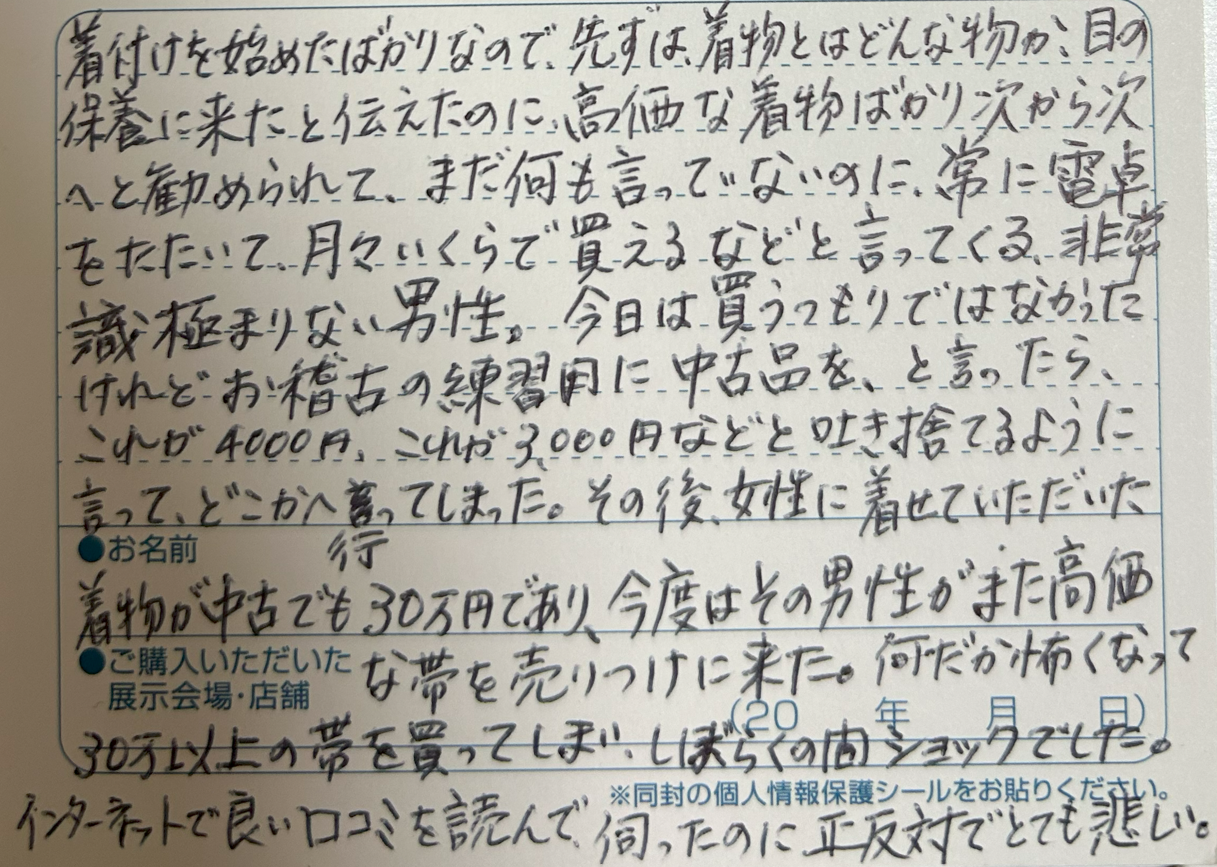 着付けを始めたばかりなので、先ずは、着物とはどんな物か、目の
保養に来たと伝えたのに、高価な着物ばかり次から次
へと勧められて、まだ何も言っていないのに、常に電卓
をたたいて、月々いくらで買えるなどと言ってくる、非常
識極まりない男性。今日は買うつもりではなかった
けれどお稽古の練習用に中古品を、と言ったら、
これが4000円、これが3,000円などと吐き捨てるように
言って、どこかへ行ってしまった。その後、女性に着せていただいた
●お名前
着物が中古でも30万円であり、今度はその男性がまた高価
●ご購入いただいた
展示会場・店舗
な帯を売りつけに来た。何だか怖くなって
(20 年 月 日)
30万以上の帯を買ってしまい、しばらくの間ショックでした。
※同封の個人情報保護シールをお貼りください。
インターネットで良い口コミを読んで、伺ったのに正反対でとても悲しい。